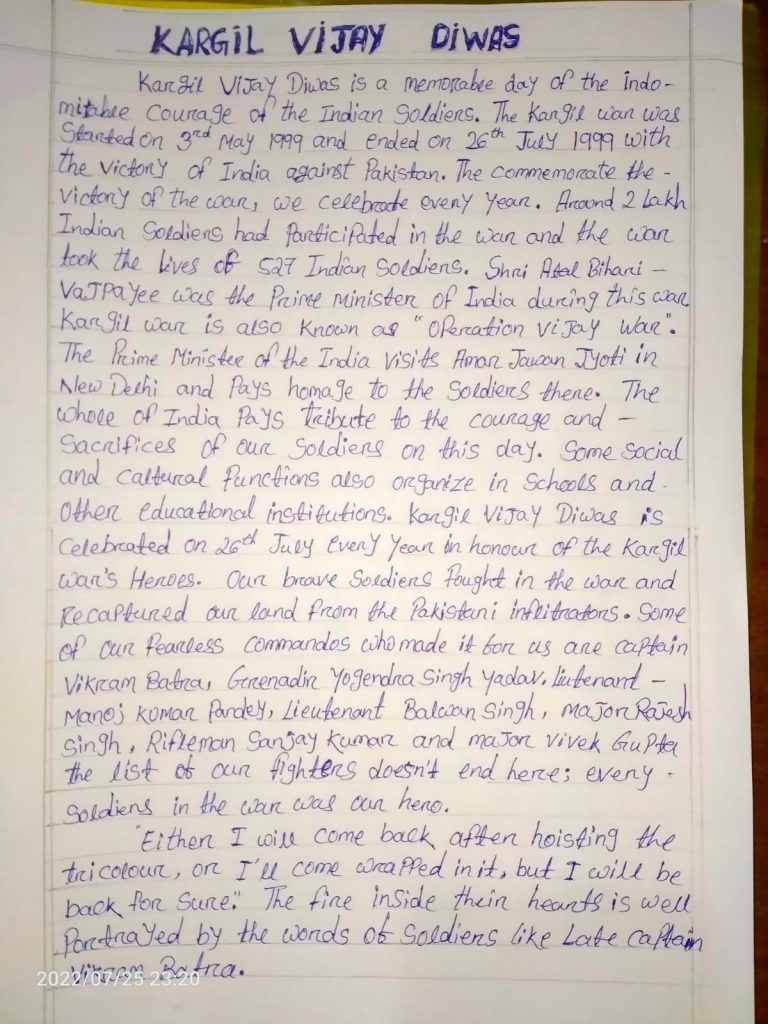 KARGIL VIJAY DIWAS
Kargil Vijay Diwas is a memorable day of the indo-
mitable courage of the Indian Soldiers. The Kargil war was
Started on 3rd May 1999 and ended on 26th July 1999 with
the victory of India against Pakistan. The commemorate the -
victory of the war, we celebrate every year. Around 2 Lakh
Indian Soldiers had Participated in the war and the war
took the lives of 527 Indian Soldiers. Shri Atal Bihari -
Vajpayee was the Prime minister of India during this war
Kargil war is also known as "Operation Vijay War".
The Prime Minister of the India visits Amar Jawan Jyoti in
New Delhi and Pays homage to the Soldiers there. The
whole of India Pays tribute to the courage and -
Sacrifices of our Soldiers on this day. Some social
and caltural functions also organize in Schools and -
Other educational institutions. Kargil Vijay Diwas is
Celebrated on 26th July every year in honour of the Kargil
war's Heroes. Our brave Soldiers fought in the war and
Recaptured our land from the Pakistani inflitrators. Some
of our fearless commandos who made it for us are captain
Vikram Batra, Grenadir Yogendra Singh Yadav, Liutenant -
Manoj Kumar Pandey, Lieutenant Balwan Singh, major Rajesh
Singh, Rifleman Sanjay Kumar and major Vivek Gupta
the list of our fighters doesn't end here; every -
Soldiers in the war was our hero.
"Either I will come back after hoisting the
tricolour, or I'll come wrapped in it, but I will be
back for sure". The fire inside their hearts is well
Portrayed by the words of Soldiers like Late captain
Vikram Batra.
2022/07/25 23:20